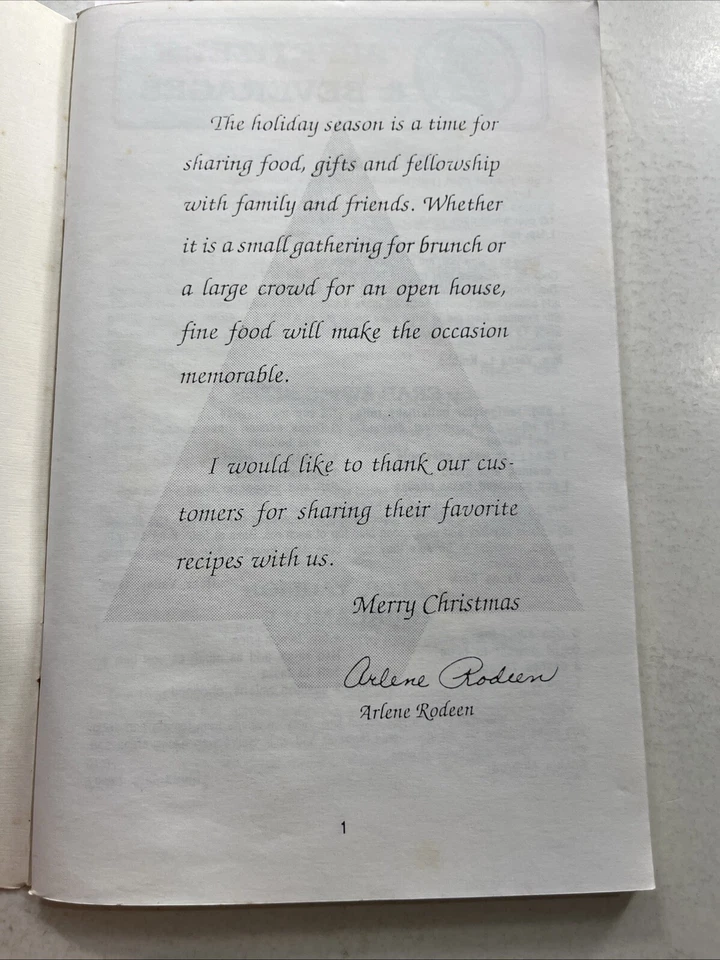 The holiday season is a time for
sharing food, gifts and fellowship
with family and friends. Whether
it is a small gathering for brunch or
a large crowd for an open house,
fine food will make the occasion
memorable.
I would like to thank our cus-
tomers for sharing their favorite
recipes with us.
Merry Christmas
Arlene Rodeen
Arlene Rodeen
1